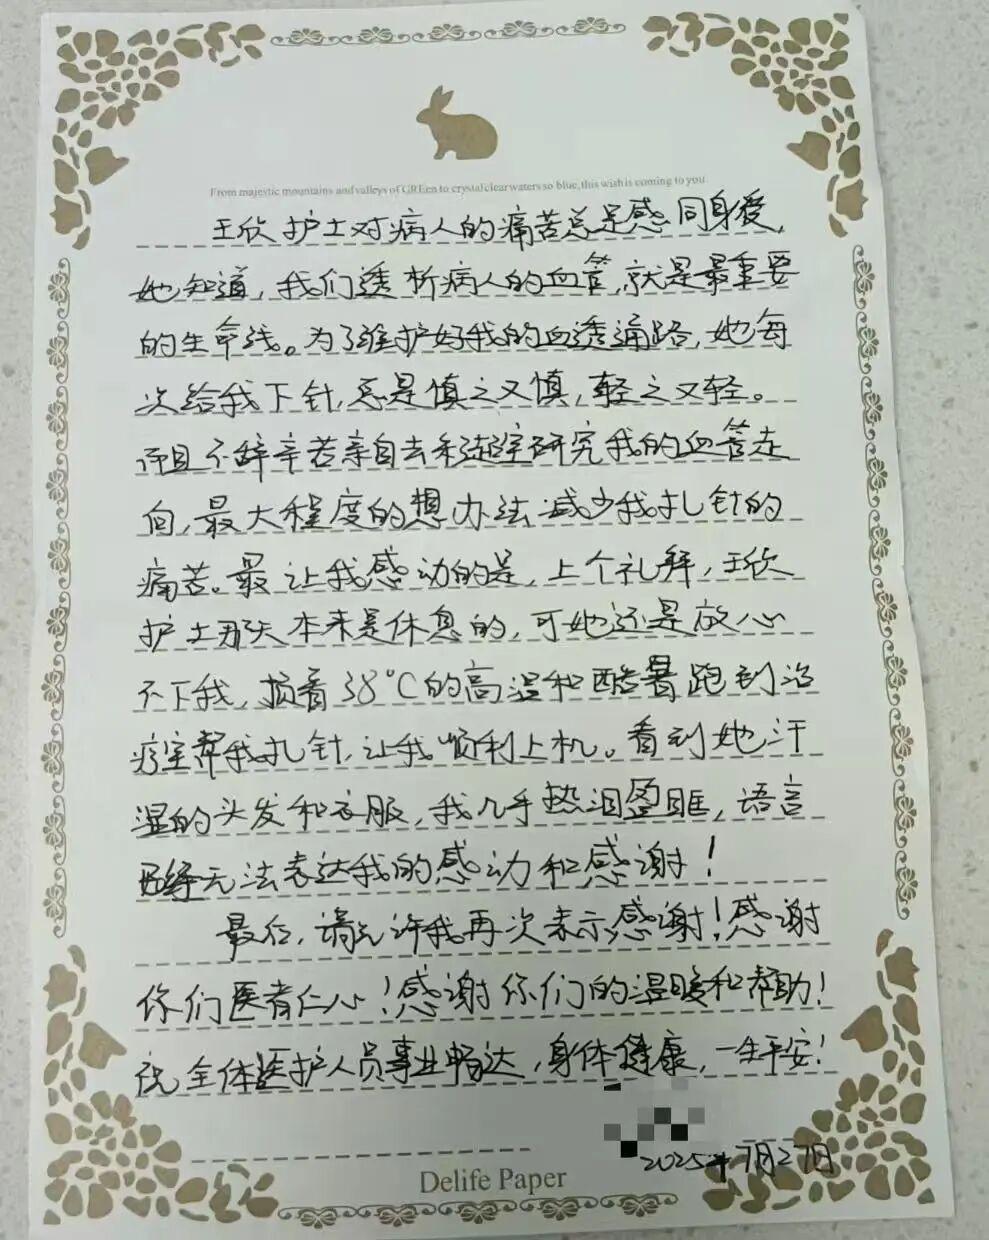 From majestic mountains and valleys of GREen to crystal clear waters so blue, this wish is coming to you.
王欣护士对病人的痛苦总是感同身爱,
她知道,我们透析病人的血管,就是最重要
的生命线。为了维护好我的血透通路,她每
次给我下针,总是慎之又慎,轻之又轻。
而且不辞辛苦亲自去彩超室研究我的血管走
向,最大程度的想办法减少我扎针的
痛苦。最让我感动的是,上个礼拜,王欣
护士那天本来是休息的,可她还是放心
不下我,顶着38°C的高温和酷暑跑到治
疗室帮我扎针,让我顺利上机。看到她汗
湿的头发和衣服,我几乎热泪盈眶,语言
已经无法表达我的感动和感谢!
最后,请允许我再次表示感谢!感谢
你们医者仁心!感谢你们的温暖和帮助!
祝全体医护人员事业畅达,身体健康,一生平安!
2025年7月27日
Delife Paper